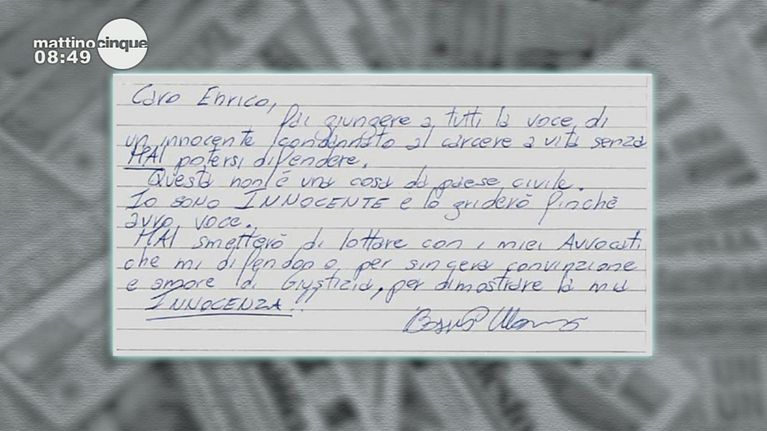 mattino cinque
08:49
Caro Enrico,
fai giungere a tutti la voce di
un innocente condannato al carcere a vita senza
MAI potersi difendere.
Questa non è una cosa da paese civile.
Io sono INNOCENTE e lo griderò finché
avrò voce.
MAI smetterò di lottare con i miei Avvocati
che mi difendono per sincera convinzione
e amore di Giustizia, per dimostrare la mia
INNOCENZA.